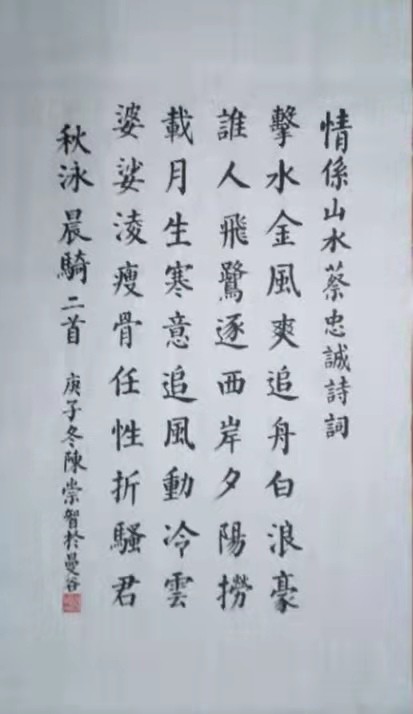 情係山水蔡忠誠詩詞
擊水金風爽追舟白浪豪
誰人飛鷺逐西岸夕陽撈
載月生寒意追風動冷雲
婆娑淩瘦骨任性折騷君
秋泳晨騎二首 庚子冬陳崇智於曼谷